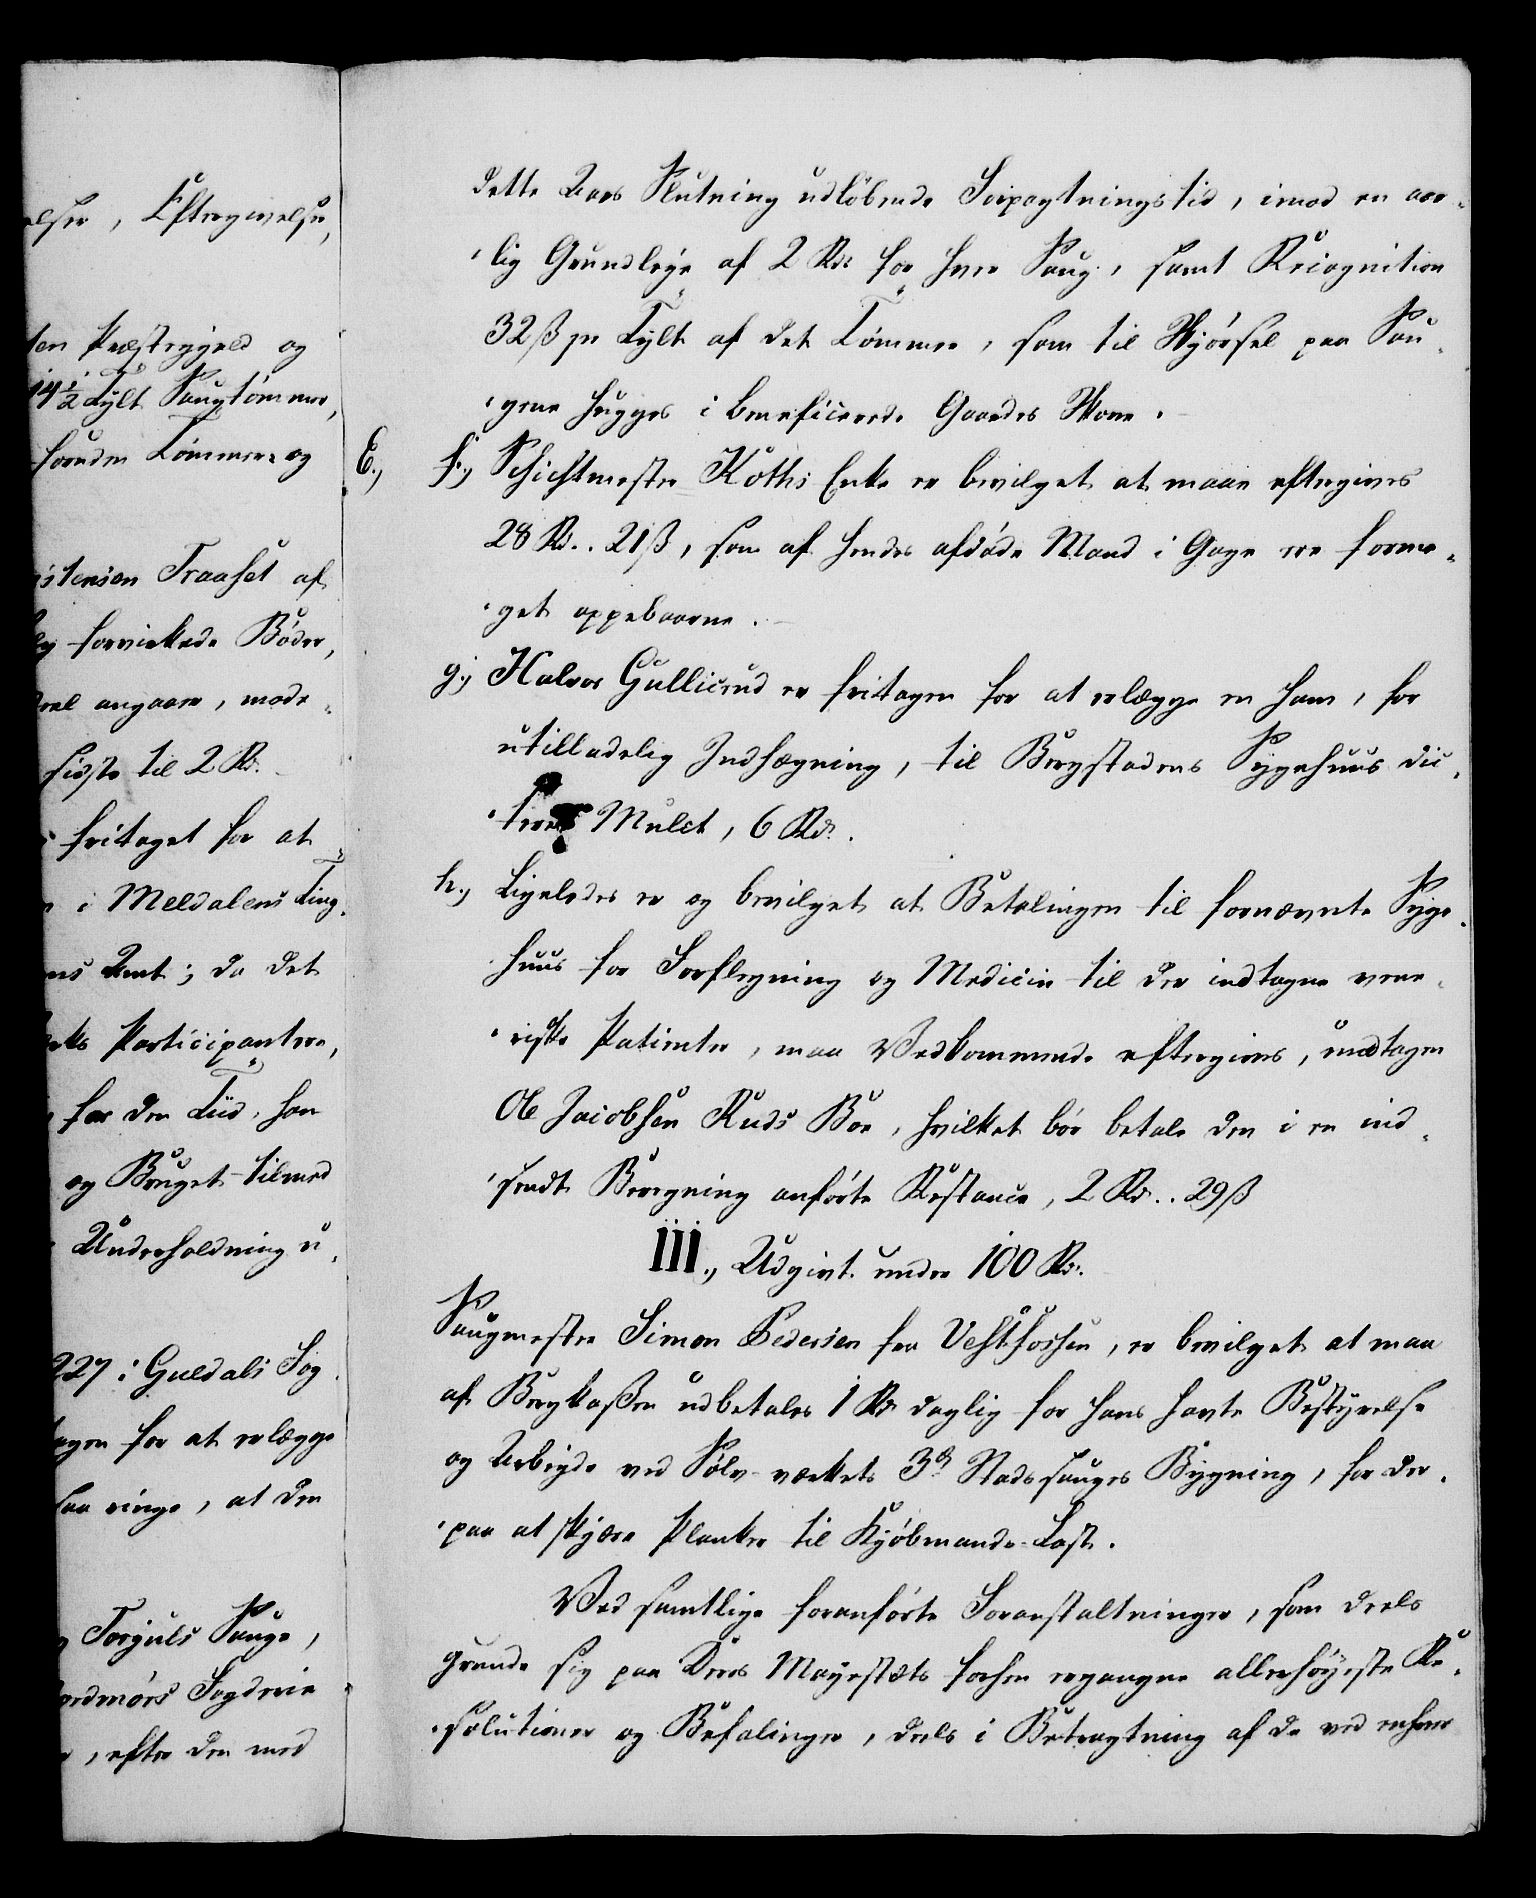 elser, Eftergivelse,
ten Præstegjeld og
14½ Tylt Saugtømmer,
foruden Tømmer- og
istensen Traaset af
forvirkede Bøder,
deel angaaer, mode-
sidste til 2 Rd.
fritaget for at
i Meldalens Ting-
ns Amt; da det
erks Participantere,
for den Tiid, han
og Bruget tilmed
Underholdning u-
227 i Guldals Fog-
agen for at erlægge
saa ringe, at den
Torjuls Sauge,
ordmørs Fogderie
, efter den med
dette Aars Slutning udløbende Forpagtningstid, imod en aar-
-lig Grundleje af 2 Rd. for hver Saug, samt Recognition
32 ß pr Tylt af det Tømmer, som til Skjørsel paa Sau-
-gene hugges i beneficerede Gaardes Skove.
E., f., Schichtmester Koths Enke er bevilget at maae eftergives
28 Rd. 21 ß, som af hendes afdøde Mand i Gage ere forme-
-get oppebaarne.
g., Halvor Gullicsrud er fritagen for at erlægge en ham, for
utilladelig Indhægning, til Bergstadens Sygehuus dic-
-teret Mulct, 6 Rd.
h., Ligeledes er og bevilget at Betalingen til fornævnte Syge-
-huus for Forflegning og Medicin til der indtagne vene-
-riske Patienter, maa Vedkommende eftergives, undtagen
Ole Jacobsen Ruds Boe, hvilket bør betale den i en ind-
-sendt Beregning anførte Restance, 2 Rd. 29 ß
III., Udgivt under 100 Rd.
Saugmester Simon Pedersen fra Vestfossen, er bevilget at maa
af Bergkassen udbetales 1 Rd daglig for hans havte Bestyrelse
og Arbeyde ved Sølv-værkets 3de Stadssauges Bygning, for der-
-paa at skjære Planker til Kjøbmands-Last.
Ved samtlige foranførte Foranstaltninger, som deels
grunde sig paa Deres Mayestæts forhen ergangne allerhøyeste Re-
-solutioner og Befalinger, deels i Betragtning af de ved enhver